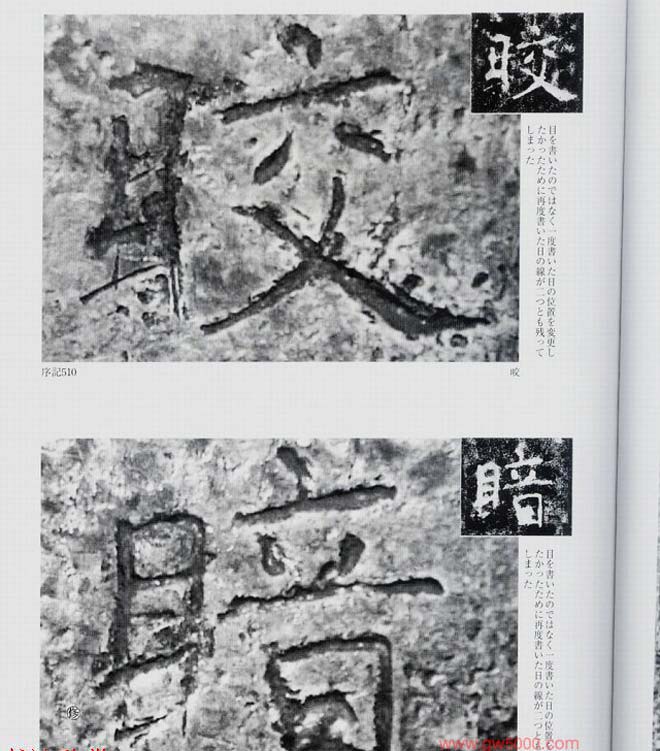 晈
目を書いたのではなく一度書いた日の位置を変更し
たかったために再度書いた日の線が二つとも残って
しまった
序記510
晈
暗
目を書いたのではなく一度書いた日の位置
たかったために再度書いた日の線が二つと
しまった